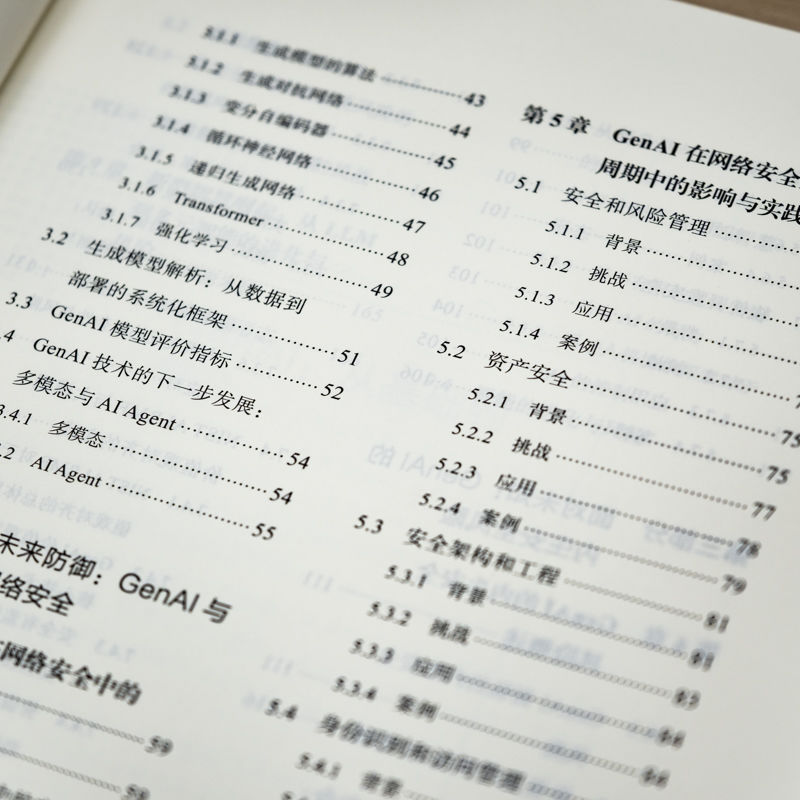 3.1.1 生成模型的算法 43
3.1.2 生成对抗网络 44
3.1.3 变分自编码器 45
3.1.4 循环神经网络 46
3.1.5 递归生成网络 47
3.1.6 Transformer 48
3.1.7 强化学习 49
3.2 生成模型解析：从数据到
部署的系统化框架 51
3.3 GenAI 模型评价指标 52
.4 GenAI 技术的下一步发展：
多模态与 AI Agent 54
3.4.1 多模态 54
.2 AI Agent 55
未来防御：GenAI 与
络安全
在网络安全中的
59
59
第 5 章 GenAI 在网络安全
周期中的影响与实践
5.1 安全和风险管理
5.1.1 背景
5.1.2 挑战
5.1.3 应用
5.1.4 案例
5.2 资产安全 75
5.2.1 背景 75
5.2.2 挑战 77
5.2.3 应用 78
5.2.4 案例 79
5.3 安全架构和工程 81
5.3.1 背景 81
5.3.2 挑战
5.3.3 应用
5.3.4 案例
5.4 身份识别和访问管理
5.4.1 背景